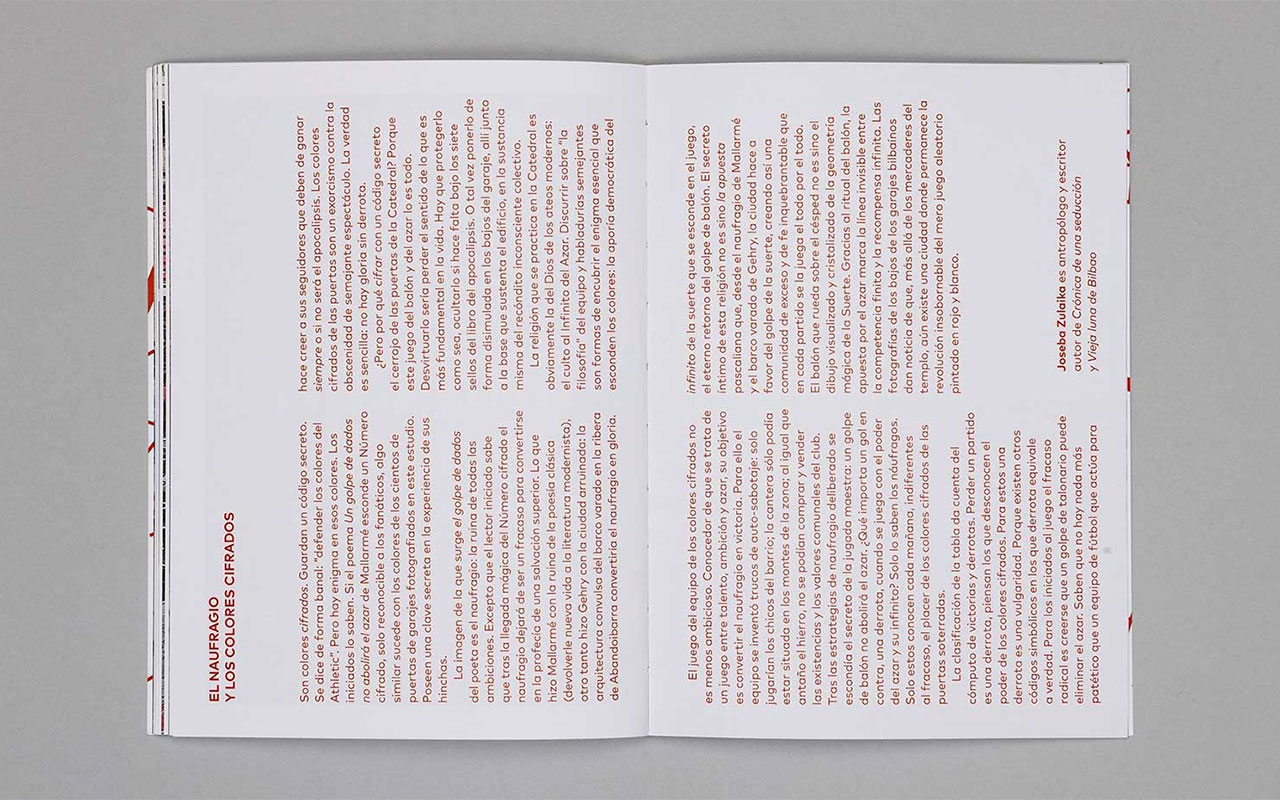 EL NAUFRAGIO
Y LOS COLORES CIFRADOS
Son colores cifrados. Guardan un código secreto.
Se dice de forma banal: "defender los colores del
Athletic". Pero hay enigma en esos colores. Los
iniciados lo saben. Si el poema Un golpe de dados
no abolirá el azar de Mallarmé esconde un Número
cifrado, solo reconocible a los fanáticos, algo
similar sucede con los colores de los cientos de
puertas de garajes fotografiados en este estudio.
Poseen una clave secreta en la experiencia de sus
hinchas.
La imagen de la que surge el golpe de dados
del poeta es el naufragio: la ruina de todas las
ambiciones. Excepto que el lector iniciado sabe
que tras la llegada mágica del Número cifrado el
naufragio dejará de ser un fracaso para convertirse
en la profecía de una salvación superior. Lo que
hizo Mallarmé con la ruina de la poesía clásica
(devolverle nueva vida a la literatura modernista),
otro tanto hizo Gehry con la ciudad arruinada: la
arquitectura convulsa del barco varado en la ribera
de Abandoibarra convertiría el naufragio en gloria.
El juego del equipo de los colores cifrados no
es menos ambicioso. Conocedor de que se trate de
un juego entre talento, ambición y azar, su objetivo
es convertir el naufragio en victoria. Para ello el
equipo se inventó trucos de auto-sabotaje: solo
jugarían los chicos del barrio; la cantera sólo podía
estar situada en los montes de la zona; al igual que
antaño el hierro, no se podían comprar y vender
las existencias y los valores comunales del club.
Tras las estrategias de naufragio deliberado se
escondía el secreto de la jugada maestra: un golpe
de balón no abolirá el azar. ¿Qué importa un gol en
contra, una derrota, cuando se juega con el poder
del azar y su infinito? Solo lo saben los náufragos.
Solo estos conocen cada mañana, indiferentes
al fracaso, el placer de los colores cifrados de las
puertas soterradas.
La clasificación de la tabla da cuenta del
cómputo de victorias y derrotas. Perder un partido
es una derrota, piensan los que desconocen el
poder de los colores cifrados. Para estos una
derrota es una vulgaridad. Porque existen otros
códigos simbólicos en los que derrota equivale
a verdad. Para los iniciados al juego el fracaso
radical es creerse que un golpe de talonario puede
eliminar el azar. Saben que no hay nada más
patético que un equipo de fútbol que actúa para
hace creer a sus seguidores que deben de ganar
siempre o si no será el apocalipsis. Los colores
cifrados de las puertas son un exorcismo contra la
obscenidad de semajante espectáculo. La verdad
es sencilla: no hay gloria sin derrota.
¿Pero por qué cifrar con un código secreto
el cerrajo de las puertas de la Catedral? Porque
este juego del balón y de azar lo es todo.
Desvirtuarlo sería perder el sentido de lo que es
más fundamental en la vida. Hay que protegerlo
como sea, ocultarlo si hace falta bajo los siete
sellos del libro del apocalipsis. O tal vez ponerlo de
forma disimulada en los bajos del garaje, allí junto
a la base que sustenta el edificio, en la sustancia
misma del recóndito inconsciente colectivo.
La religión que se practica en la Catedral es
obviamente la del Dios de los ateos modernos:
el culto al Infinito del Azar. Discurrir sobre "la
filosofía" del equipo y habladurías semejantes
son formas de encubrir el enigma esencial que
esconden los colores: la aporía democrática del
infinito de la suerte que se esconde en el juego,
el eterno retorno del golpe de balón. El secreto
íntimo de esta religión no es sino la apuesta
pascaliana que, desde el naufragio de Mallarmé
y el barco varado de Gehry, la ciudad hace a
favor del golpe de la suerte, creando así una
comunidad de exceso y de fe inquebrantable que
en cada partido se la juega el todo por el todo.
El balón que rueda sobre el césped no es sino el
dibujo visualizado y cristalizado de la geometría
mágica de la Suerte. Gracias al ritual del balón, la
apuesta por el azar marca la línea invisible entre
la competencia finita y la recompensa infinita. Las
fotografías de los bajos de los garajes bilbaínos
dan noticia de que, más allá de los mercaderes del
templo, aún existe una ciudad donde permanece la
revolución insobornable del mero juego aleatorio
pintado en rojo y blanco.
Joseba Zulaika es antropólogo y escritor
autor de Crónica de una seducción
y Vieja luna de Bilbao